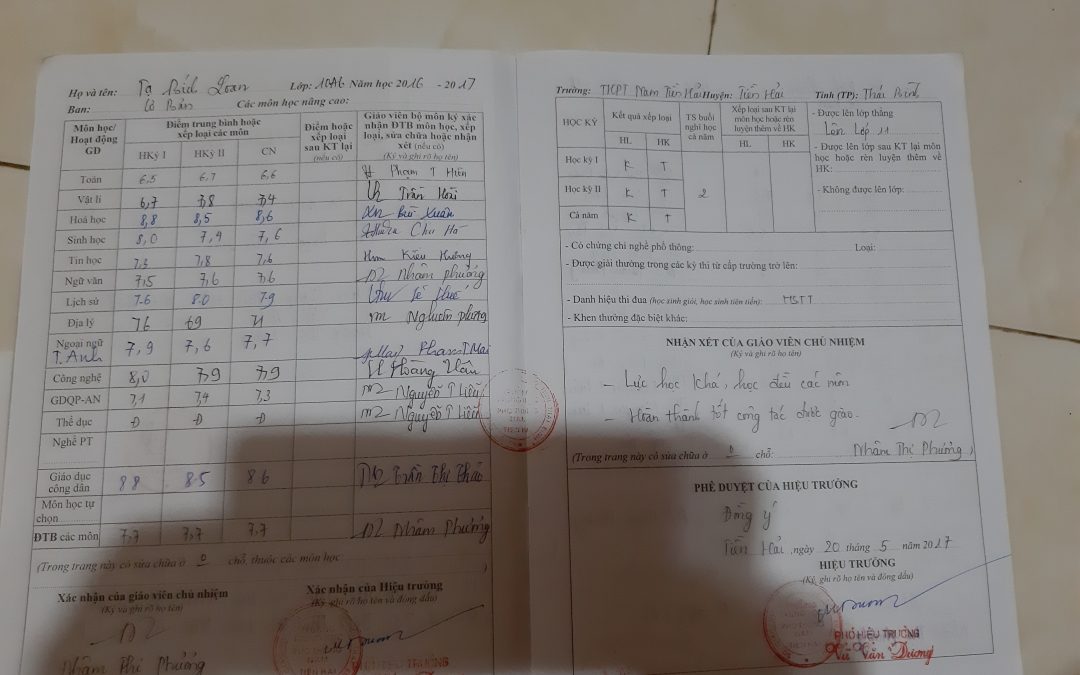 Họ và tên: Tạ Bích Loan Lớp: 10A6 Năm học 2016 - 2017
Ban: Cơ Bản Các môn học nâng cao:
Môn học/ Hoạt động GD
Điểm trung bình hoặc xếp loại các môn
HKỳ I HKỳ II CN
Điểm hoặc xếp loại sau KT lại (nếu có)
Giáo viên bộ môn ký xác nhận ĐTB môn học, xếp loại, sửa chữa hoặc nhận xét (nếu có)
(Ký và ghi rõ họ tên)
Toán 6,5 6,7 6,6 Phạm T Hiên
Vật lí 6,7 7,8 7,4 Trần Hoài
Hoá học 8,8 8,5 8,6 Bùi Xuân
Sinh học 8,0 7,4 7,6 Chu Hà
Tin học 7,3 7,8 7,6 Kiều Hương
Ngữ văn 7,5 7,6 7,6 Nhâm Phượng
Lịch sử 7.6 8.0 7.9
Địa lý 7,6 6,9 7,1
Ngoại ngữ
T. Anh 7,9 7,6 7,7 Phạm T Mai
Công nghệ 8,0 7,9 7,9 Hoàng Vân
GDQP-AN 7,1 7,4 7,3 Nguyễn T Liễu
Thể dục Đ Đ Đ Nguyễn T Liễu
Nghề PT
Giáo dục công dân 8.8 8.5 8.6 Trần Thị Thảo
Môn học tự chọn
ĐTB các môn 7,7 7,7 7,7 Nhâm Phượng
(Trong trang này có sửa chữa ở 0 chỗ, thuộc các môn học
)
Xác nhận của giáo viên chủ nhiệm Xác nhận của Hiệu trưởng
(Ký và ghi rõ họ tên) (Ký, ghi rõ họ tên và đóng dấu)
Nhâm Thị Phượng
PHÓ HIỆU TRƯỞNG
Trường: THPT Nam Tiền Hải Huyện: Tiền Hải Tỉnh (TP): Thái Bình
HỌC KỲ
Kết quả xếp loại
HL HK
TS buổi nghỉ học cả năm
Xếp loại sau KT lại môn học hoặc rèn luyện thêm về HK
HL HK
Học kỳ I K T
Học kỳ II K T 2
Cả năm K T
- Được lên lớp thẳng
Lên Lớp 11
- Được lên lớp sau KT lại môn học hoặc rèn luyện thêm về HK:
- Không được lên lớp:
- Có chứng chỉ nghề phổ thông: Loại:
- Được giải thưởng trong các kỳ thi từ cấp trường trở lên:
- Danh hiệu thi đua (học sinh giỏi, học sinh tiên tiến): HSTT
- Khen thưởng đặc biệt khác:
NHẬN XÉT CỦA GIÁO VIÊN CHỦ NHIỆM
(Ký và ghi rõ họ tên)
- Lực học Khá, học đều các môn
- Hoàn thành tốt công tác được giao.
Nhâm Thị Phượng
(Trong trang này có sửa chữa ở 0 chỗ: )
PHÊ DUYỆT CỦA HIỆU TRƯỞNG
Đồng ý
Tiền Hải, ngày 20 tháng 5 năm 2017
HIỆU TRƯỞNG
(Ký, ghi rõ họ tên và đóng dấu)
PHÓ HIỆU TRƯỞNG
Vũ Văn Dương